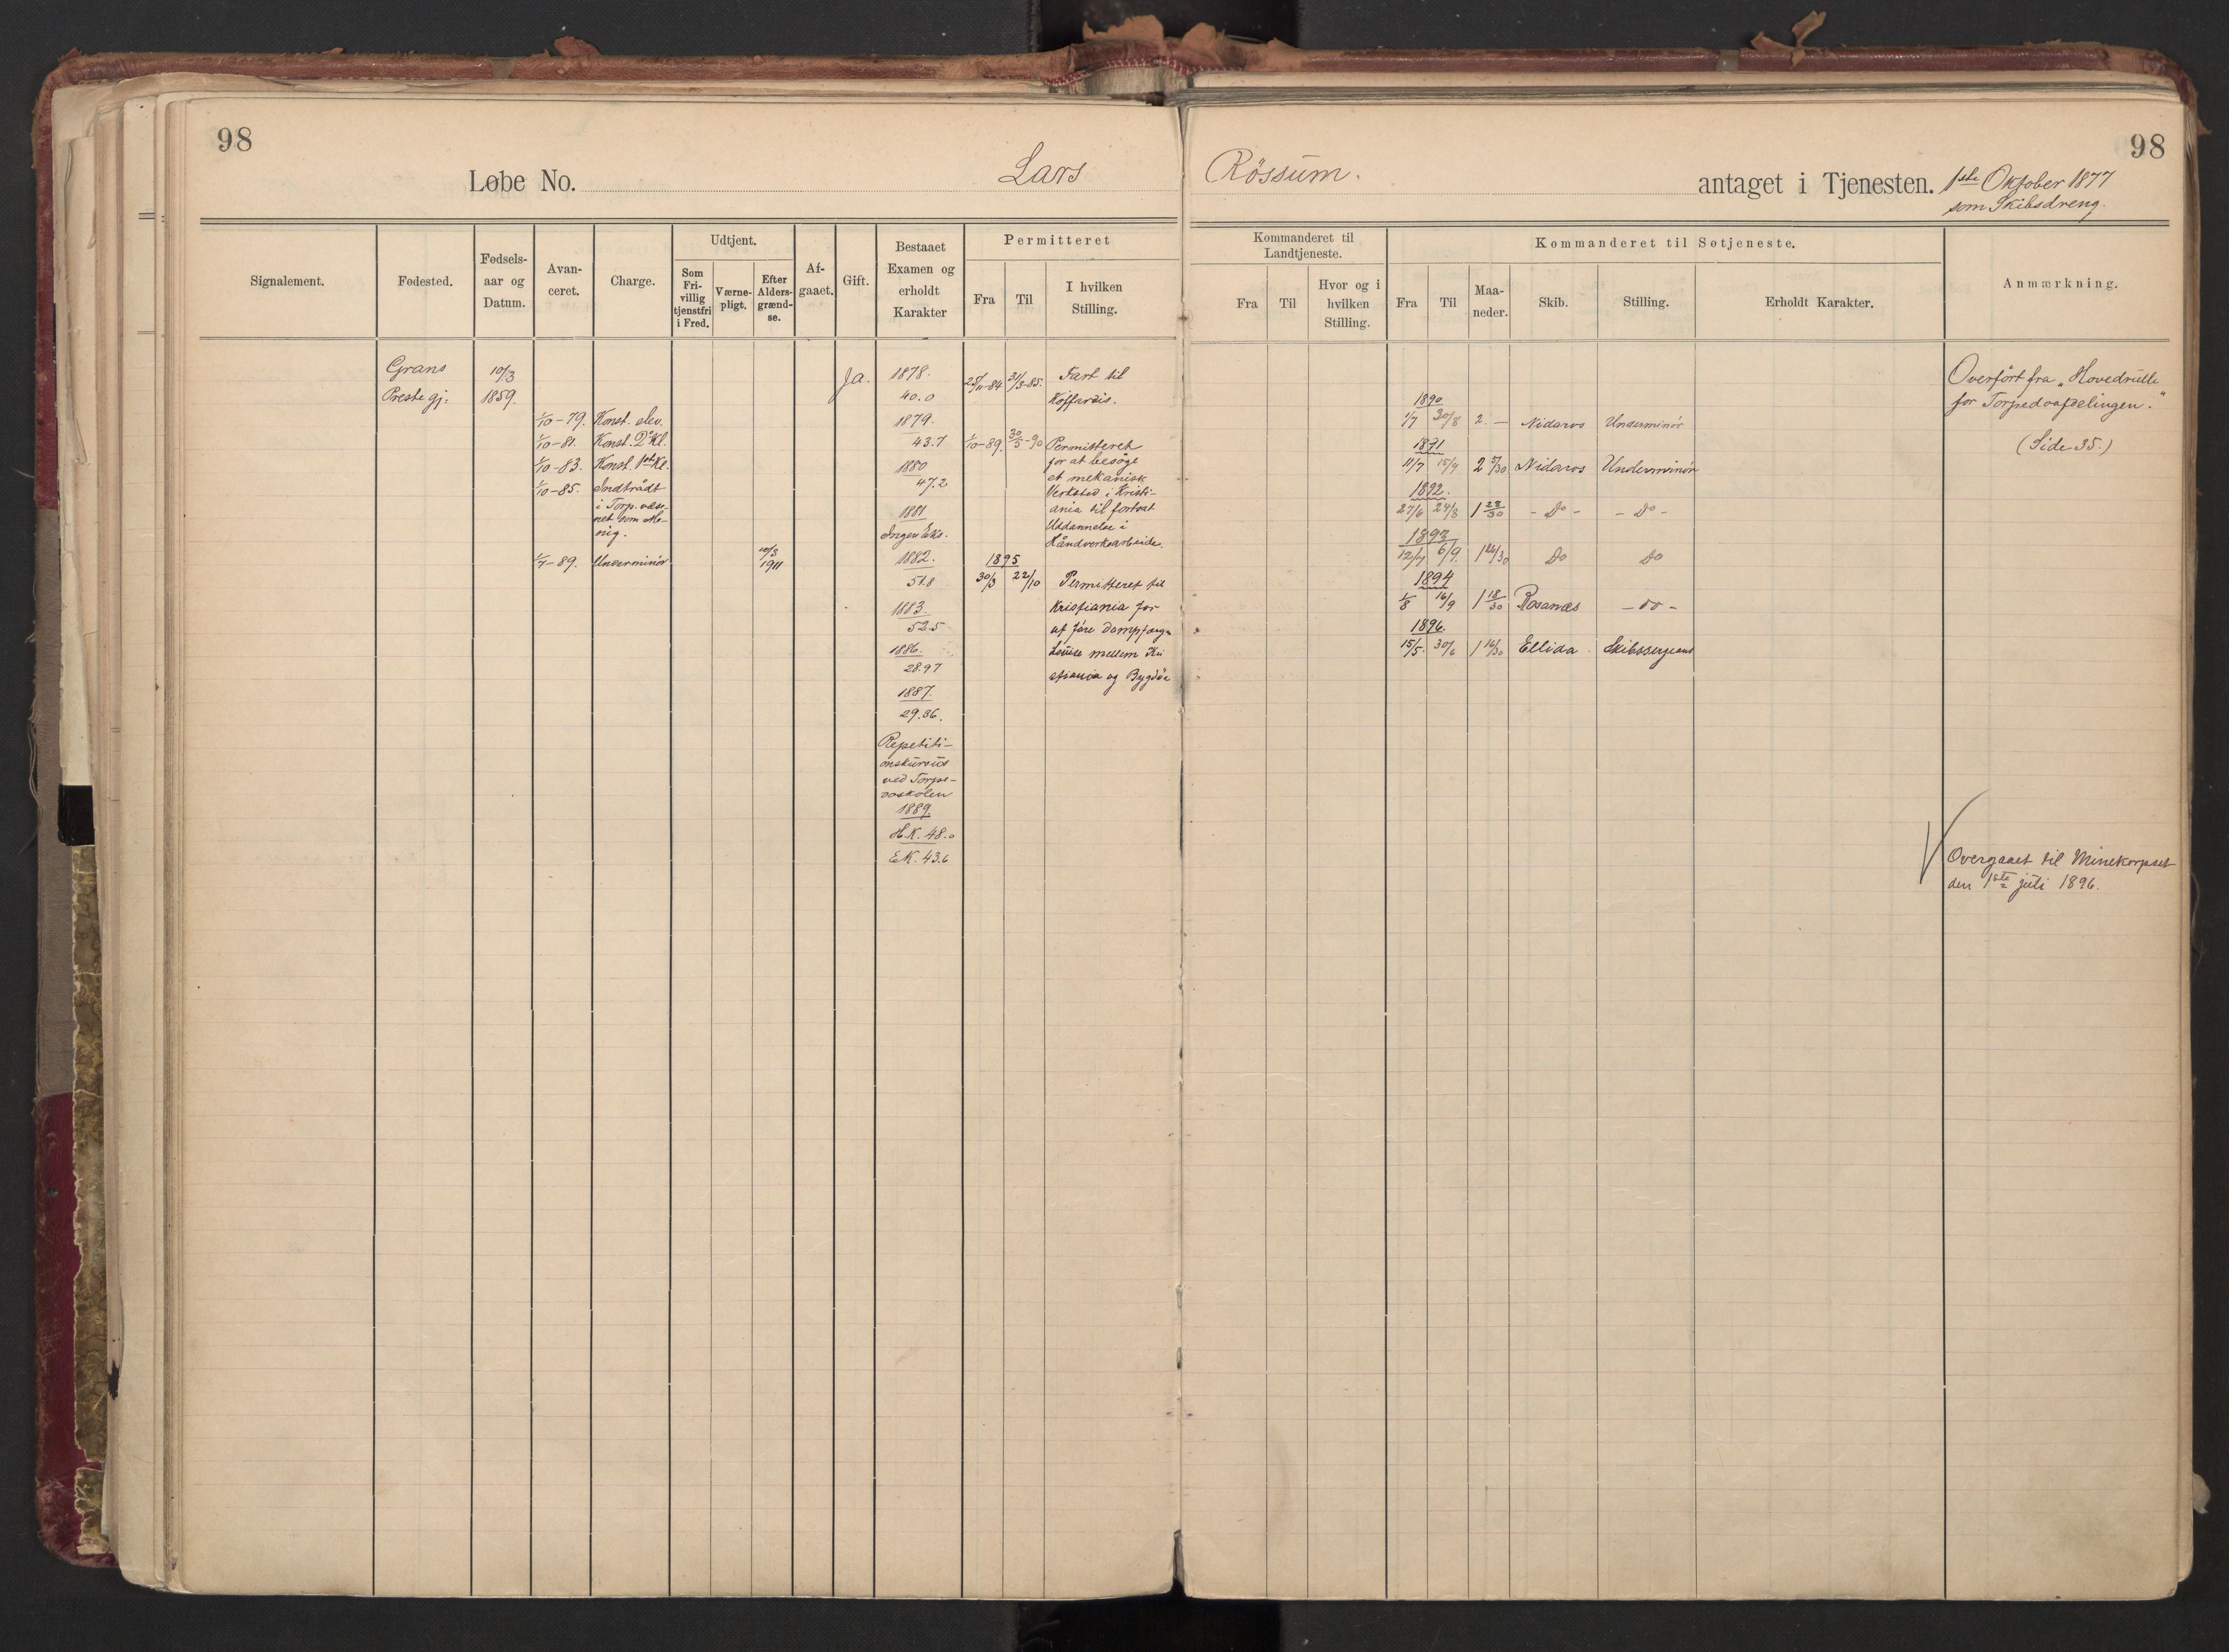 98
98
Løbe No. Lars Rössum. antaget i Tjenesten. 1ste Oktober 1877
som Skibsdreng.
Signalement.
Fødested.
Fødsels-
aar og
Datum.
Avan-
ceret.
Charge.
Udtjent.
Som
Fri-
villig
tjenstfri
i Fred.
Værne-
pligt.
Efter
Alders-
grænd-
se.
Af-
gaaet.
Gift.
Bestaaet
Examen og
erholdt
Karakter
Permitteret
Fra
Til
I hvilken
Stilling.
Kommanderet til
Landtjeneste.
Fra
Til
Hvor og i
hvilken
Stilling.
Kommanderet til Søtjeneste.
Fra
Til
Maa-
neder.
Skib.
Stilling.
Erholdt Karakter.
Anmærkning.
Grans
Prestegj:
10/3
1859.
1/10-79. Konst. elev.
1/10-81. Konst. 2d Kl.
1/10-83. Konst. 1st Kl.
1/10-85. Indtrådt
i Torp. væse-
net som Me-
nig.
1/7-89. Underminör
10/3
1911
Ja.
1878.
40.0
1879.
43.7
1880
47.2
1881
Ingen Eks.
1882.
51.8
1883.
52.5
1886.
28.97
1887.
29.36.
Repetiti-
onskursus
ved Torpe-
doskolen
1889.
H.K. 48.0
E.K. 43.6
25/11-84 31/3-85. Fart til
Koffardis.
1/10-89. 30/5-90 Permitteret
for at besøge
et mekanisk
Verksted i Kristi-
ania til fortsat
Uddannelse i
Håndverksarbeide.
1895
30/3 22/10 Permitteret til
Kristiania for
at føre Dampfærge
Louise mellem Kri
stiania og Bygdöe
1890
1/7 30/8 2. — Nidaros Underminör
1891
11/7 15/9 2 5/30 Nidaros Underminör
1892.
27/6 24/8 1 28/30 - Do - - Do -
1893
12/7 6/9. 1 26/30 Do Do
1894
1/8 16/9 1 18/30 Rosanæs - do -
1896.
15/5. 30/6 1 16/30 Ellida Skibssergeant
Overført fra "Hovedrulle
for Torpedoafdelingen."
(Side 35.)
Overgaaet til Minekorpset
den 1ste juli 1896.